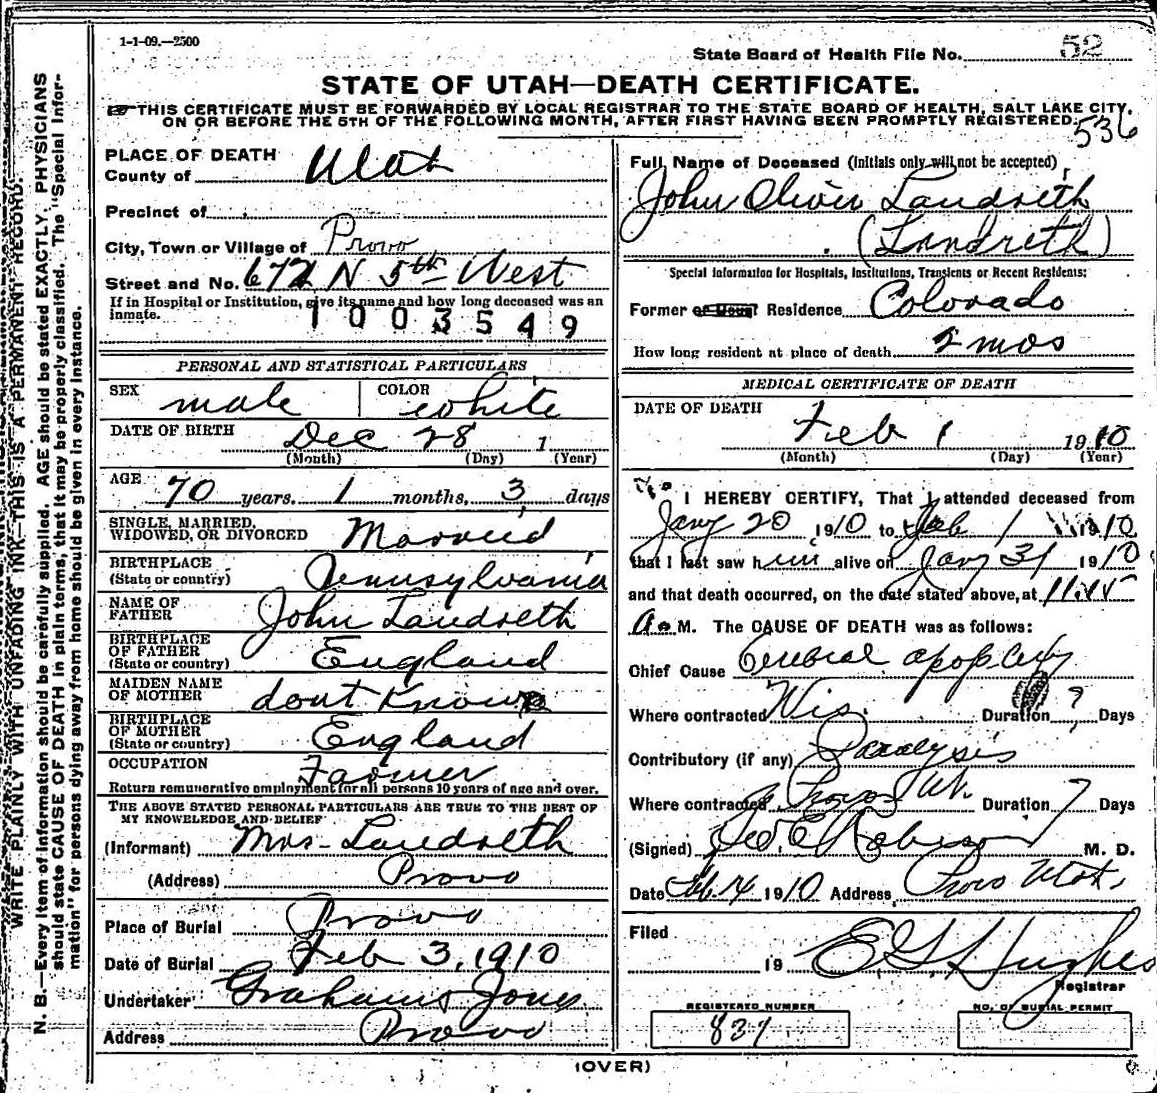 1-1-09.—2500
State Board of Health File No. 52
STATE OF UTAH—DEATH CERTIFICATE.
THIS CERTIFICATE MUST BE FORWARDED BY LOCAL REGISTRAR TO THE STATE BOARD OF HEALTH, SALT LAKE CITY,
ON OR BEFORE THE 5TH OF THE FOLLOWING MONTH, AFTER FIRST HAVING BEEN PROMPTLY REGISTERED.
536
PLACE OF DEATH
County of Utah
Precinct of
City, Town or Village of Provo
Street and No. 672 N 5th West
If in Hospital or Institution, give its name and how long deceased was an
inmate.
1003549
PERSONAL AND STATISTICAL PARTICULARS
SEX male COLOR white
DATE OF BIRTH Dec 28 1
(Month) (Day) (Year)
AGE 70 years, 1 months, 3 days
SINGLE, MARRIED,
WIDOWED, OR DIVORCED Married
BIRTHPLACE
(State or country) Pennsylvania
NAME OF
FATHER John Landreth
BIRTHPLACE
OF FATHER
(State or country) England
MAIDEN NAME
OF MOTHER dont Know
BIRTHPLACE
OF MOTHER
(State or country) England
OCCUPATION Farmer
Return remunerative employment for all persons 10 years of age and over.
THE ABOVE STATED PERSONAL PARTICULARS ARE TRUE TO THE BEST OF
MY KNOWLEDGE AND BELIEF
(Informant) Mrs- Landreth
(Address) Provo
Place of Burial Provo
Date of Burial Feb 3, 1910
Undertaker Grahams Jones
Address Provo
Full Name of Deceased (Initials only will not be accepted)
John Oliver Landreth
(Landreth)
Special Information for Hospitals, Institutions, Transients or Recent Residents:
Former or Usual Residence Colorado
How long resident at place of death 2 mos
MEDICAL CERTIFICATE OF DEATH
DATE OF DEATH
Feb 1 1910
(Month) (Day) (Year)
I HEREBY CERTIFY, That I attended deceased from
Jany 20 1910 to Feb 1 1910
that I last saw him alive on Jany 31 1910
and that death occurred, on the date stated above, at 11.45
A. M. The CAUSE OF DEATH was as follows:
Chief Cause Cerebral apoplexy
Where contracted Wis. Duration ? Days
Contributory (if any) Paralysis
Where contracted Provo Ut. Duration 7 Days
(Signed) Geo E Robison M. D.
Date Feb. 4 1910 Address Provo Utah.
Filed
19 E G Hughes
Registrar
REGISTERED NUMBER
831
NO. OF BURIAL PERMIT
(OVER)
WRITE PLAINLY WITH UNFADING INK—THIS IS A PERMANENT RECORD.
N. B.—Every item of information should be carefully supplied. AGE should be stated EXACTLY. PHYSICIANS
should state CAUSE OF DEATH in plain terms, that it may be properly classified. The "Special Infor-
mation" for persons dying away from home should be given in every instance.